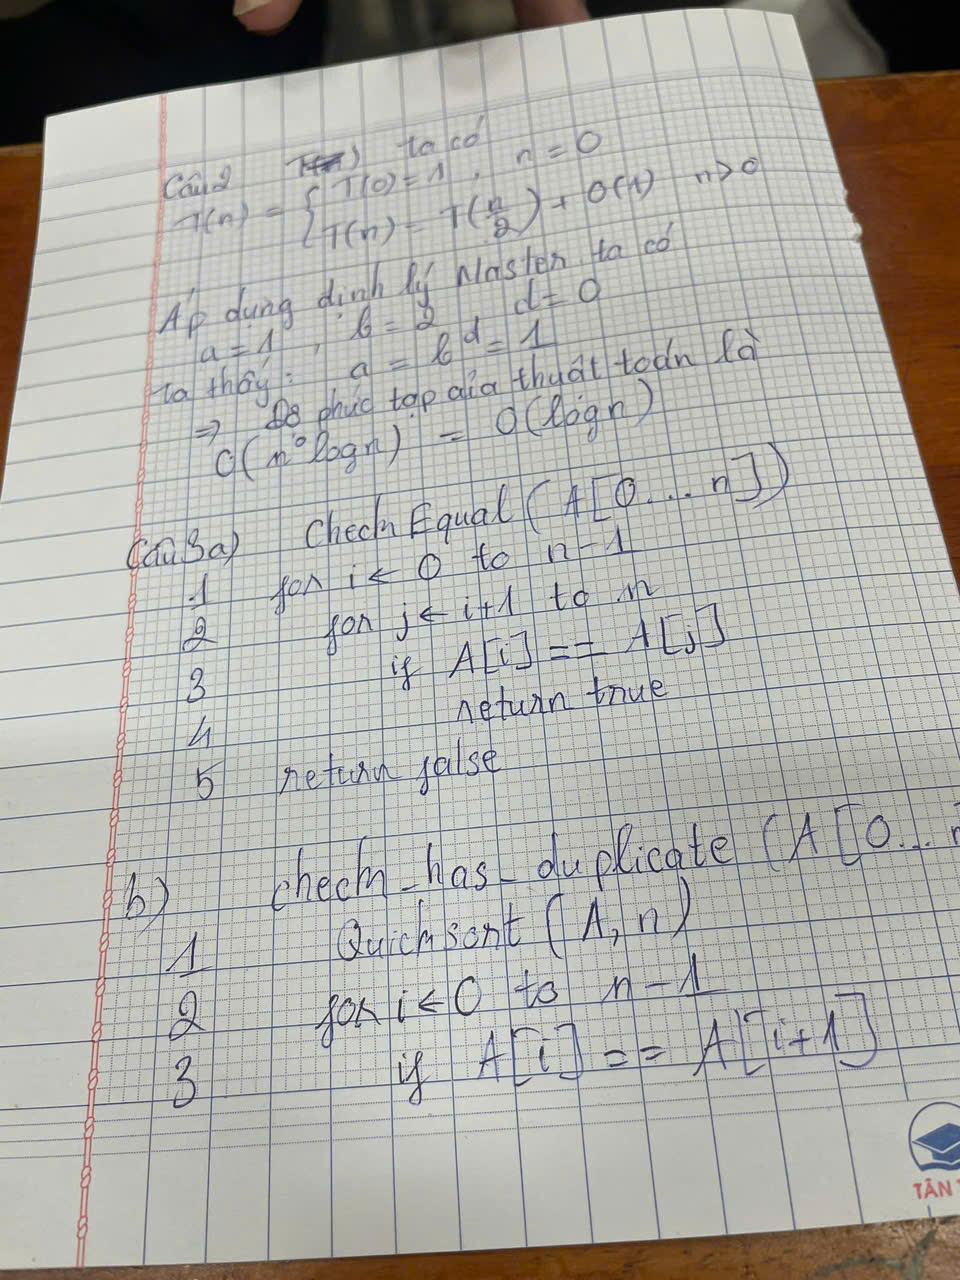 Câu 2 ta có
T(n) = { T(0) = 1 , n = 0
T(n) = T(n/2) + O(1) n > 0
Áp dụng định lý Master ta có
a = 1 , b = 2 d = 0
Ta thấy: a = b^d = 1
⇒ Độ phức tạp của thuật toán là
O(n^0 logn) = O(logn)
Câu 3a) Check Equal (A[0...n])
1 for i ← 0 to n-1
2 for j ← i+1 to n
3 if A[i] == A[j]
4 return true
5 return false
b) check_has_duplicate (A[0...n
1 Quicksort (A, n)
2 for i ← 0 to n-1
3 if A[i] == A[i+1]
TÂN